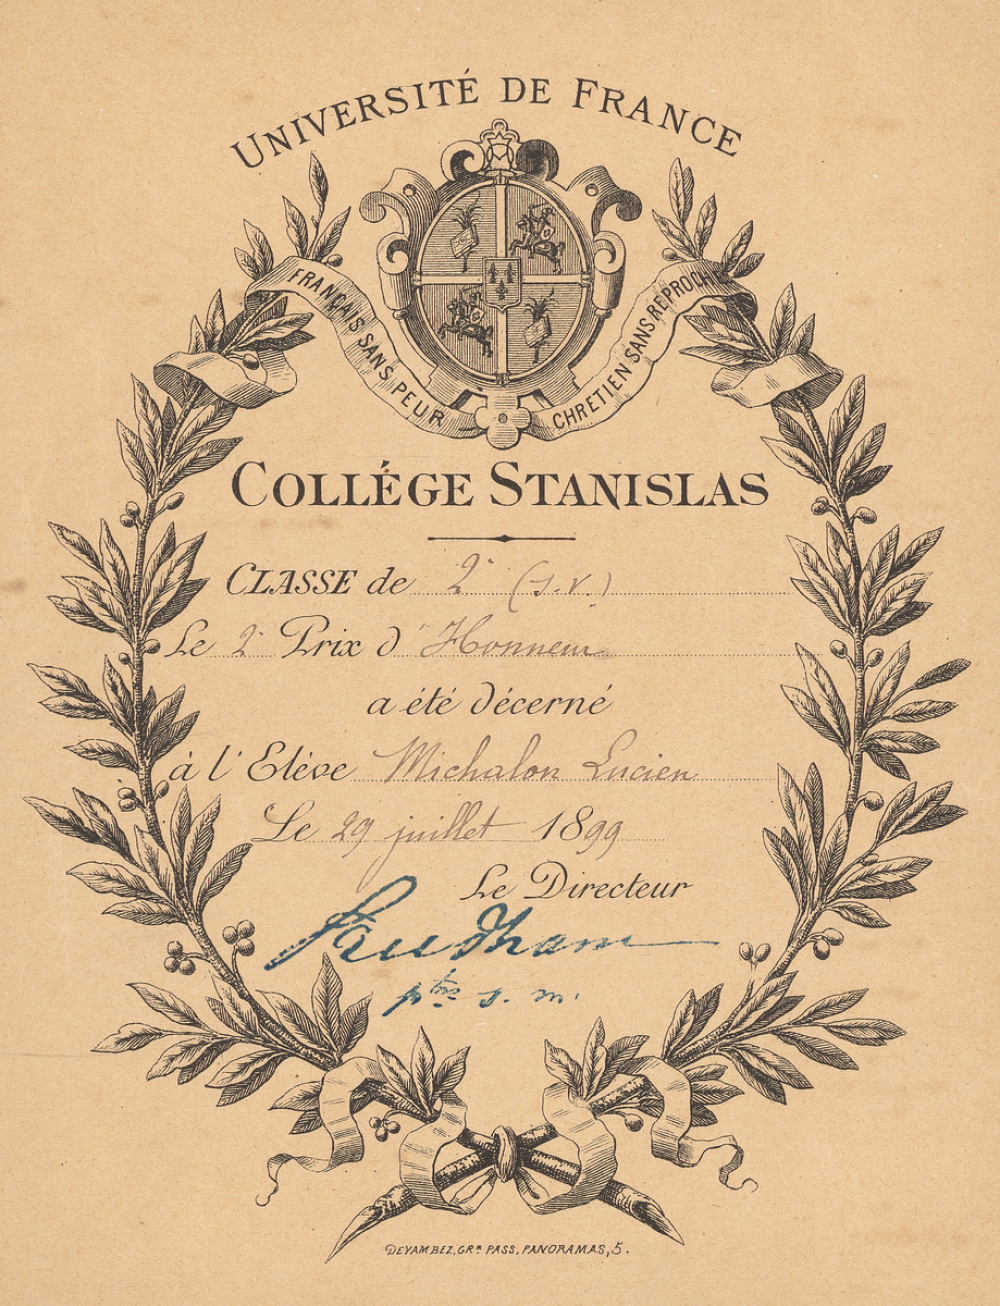 UNIVERSITÉ DE FRANCE
FRANÇAIS SANS PEUR
CHRETIEN SANS REPROCHE
COLLÉGE STANISLAS
CLASSE de 2e (s.v.)
Le 2e Prix d'Honneur
a été décerné
à l'Elève Michalon Lucien
Le 29 juillet 1899
Le Directeur
ptre s. m.
DEVAMBEZ, GRR PASS. PANORAMAS, 5.